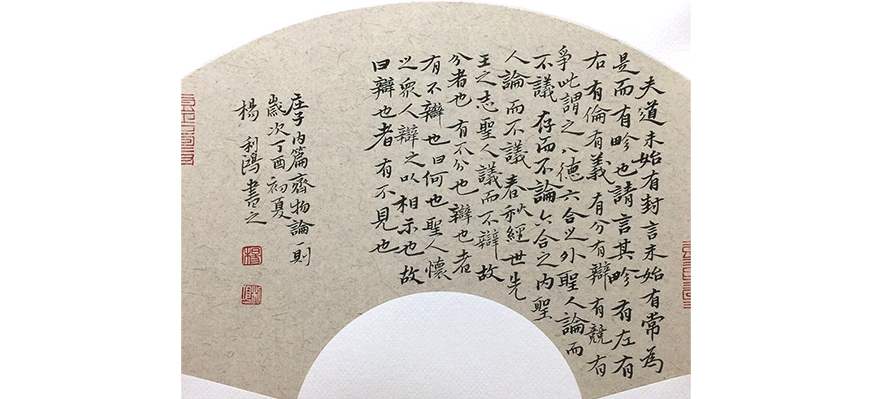 夫道未始有封言未始有常為
是而有畛也請言其畛有左有
右有倫有義有分有辯有競有
爭此謂之八德六合之外聖人論而
不議存而不論六合之内聖
人論而不議春秋經世先
王之志聖人議而不辯故
分者也有不分也辯也者
有不辯也曰何也聖人懷
之眾人辯之以相示也故
曰辯也者有不見也
庄子内篇齊物論一則
歲次丁酉初夏
楊利鴻書之